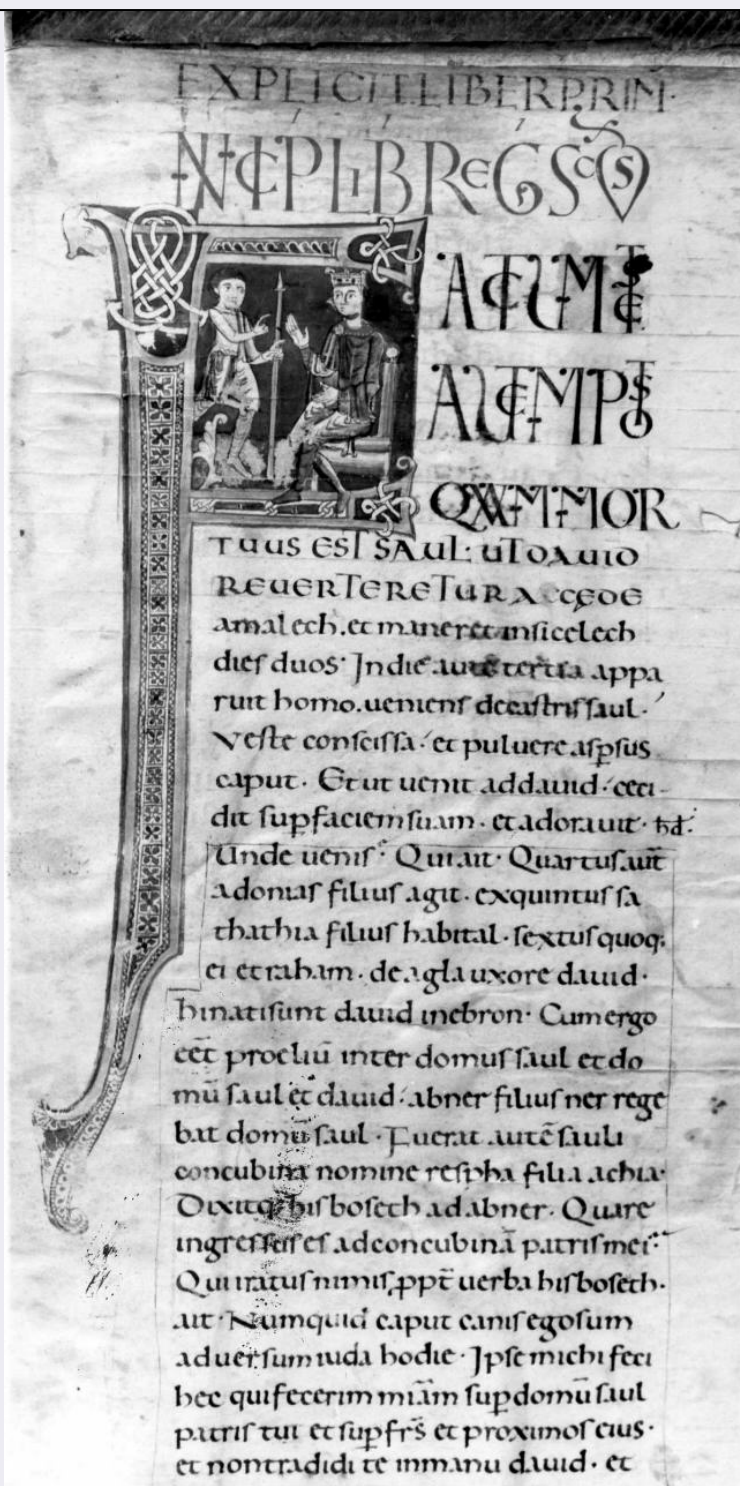 EXPLICIT LIBER PRIM·
INCIP LIB REGŪ SCƊS
FACTUM Ē
AUTEM POST
QUAM MOR
TUUS EST SAUL: UT DAVID
REUERTERETUR A CĘDE
amalech. et maneret in sicelech
dies duos· In die autē tertia appa
ruit homo. ueniens de castris saul·
Veste conscissa· et puluere asp̄sus
caput· Et ut uenit ad dauid· ceci-
dit sup faciem suam· et adorauit·
Unde uenis· Qui ait· Quartus aut̄
adonias filius agit· ex quintus sa
thathia filius habital· sextus quoq;
ei etraham· de agla uxore dauid·
hi nati sunt dauid in ebron· Cum ergo
eēt proeliū inter domus saul et do
mū saul et dauid· abner filius ner rege
bat domū saul· Fuerat autē sauli
concubina nomine respha filia achia·
Dixitq; hisboseth ad abner· Quare
ingressus es ad concubinā patris mei·
Qui iratus nimis ppt̄ uerba hisboseth·
ait· Numquid caput canis ego sum
aduersum iuda hodie· Ipse michi feci
hec qui fecerim miām sup domū saul
patris tui et sup fr̄s et proximos eius·
et non tradidi te in manu dauid· et